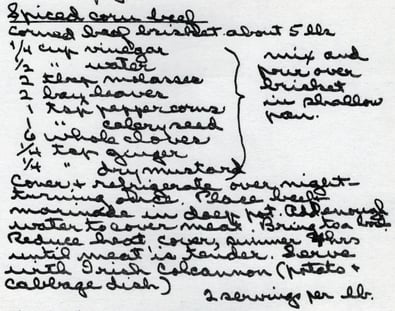 Spiced corn beef
corned beef brisket about 5 lb
1/4 cup vinegar
1/2 " water
2 tbsp molasses
2 bay leaves
1 tsp peppercorns
1 " celery seed
6 whole cloves
1/4 tsp ginger
1/4 " dry mustard
mix and
pour over
brisket
in shallow
pan.
Cover + refrigerate over night
turning once. Place beef
marinade in deep pot. Add enough
water to cover meat. Bring to a boil.
Reduce heat cover, simmer 4 hrs
until meat is tender. Serve
with Irish Colcannon (potato +
cabbage dish)
2 servings per lb.